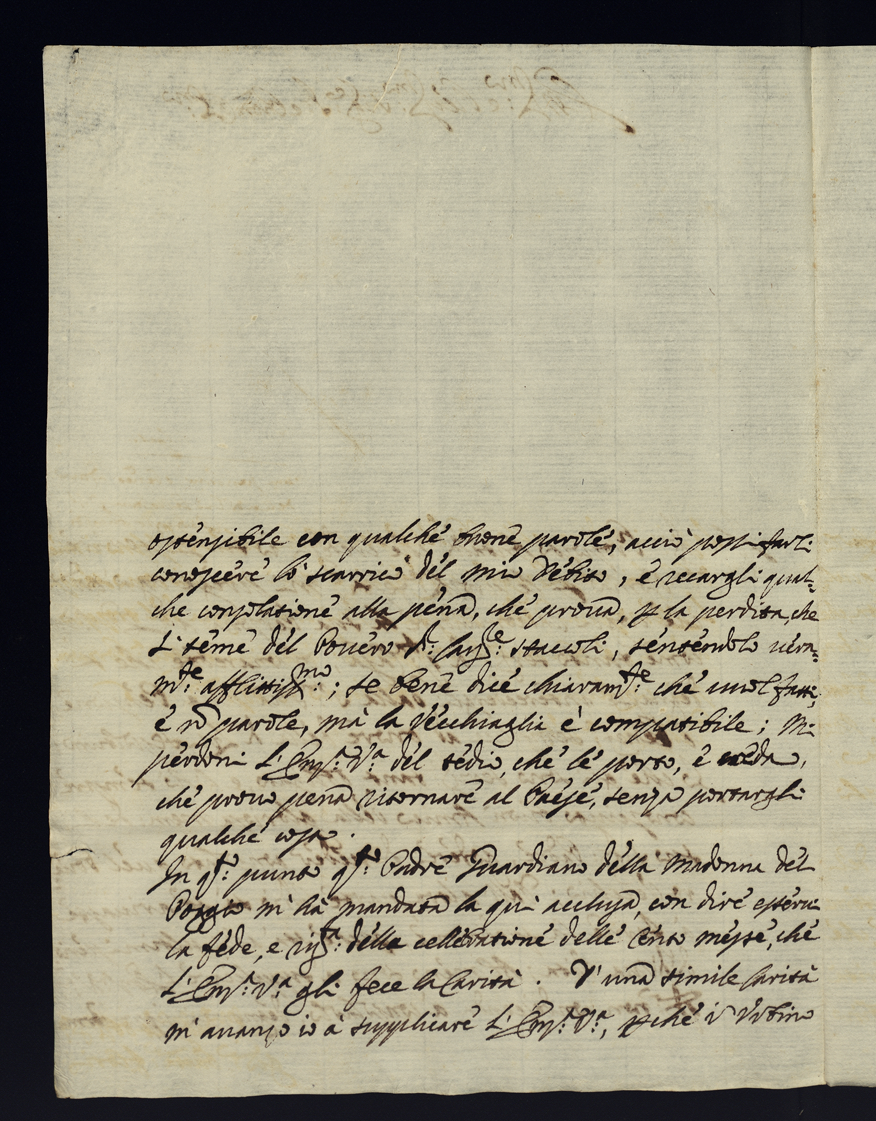 ostensibile con qualche buone parole, acciò possi farli
conoscere lo scarrico del mio debito, è recargli qual-
che consolatione alla pena, che proua, p la perdita, che
si teme del Pouero Sr: Staccoli, sentendolo uera-
mte: afflittissmo:; se bene dice chiaramte: che uuol fatti,
è nō parole, mà la vecchiaglia è compatibile; Mi
perdoni L'Emza: Va: del tedio, che le porto, è creda,
che prouo pena ritornare al Paese, senza portargli
qualche cosa.
In qto: punto qto: Padre Guardiano della Madonna del
Poggio m'hà mandata la qui acclusa, con dire esserui
la fede, e della cellebratione delle Cento messe, che
L'Emza: Va: gli fece la Carità. D'una simile Carità
m'auanzo io à supplicare L'Emza: Va:, pche i Vrbino